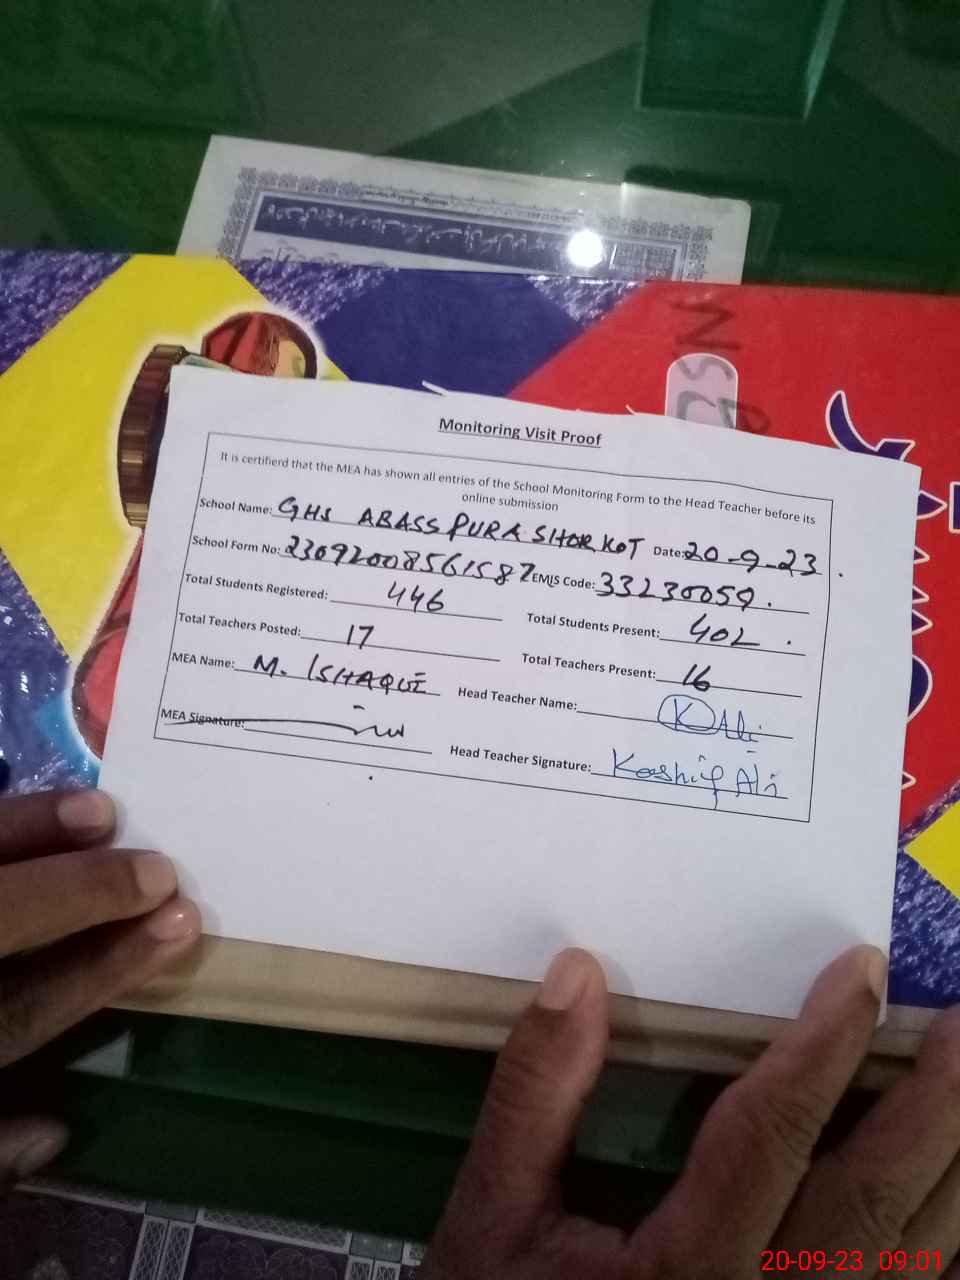 Monitoring Visit Proof
It is certifierd that the MEA has shown all entries of the School Monitoring Form to the Head Teacher before its
online submission
School Name: GHS ABASS PURA SHOR KOT Date: 20-9-23
School Form No: 2309200856158 7 EMIS Code: 33230059
Total Students Registered: 446 Total Students Present: 402
Total Teachers Posted: 17 Total Teachers Present: 16
MEA Name: M. ISHAQUE Head Teacher Name: K Ali
MEA Signature: Head Teacher Signature: Kashif Ali
20-09-23 09:01